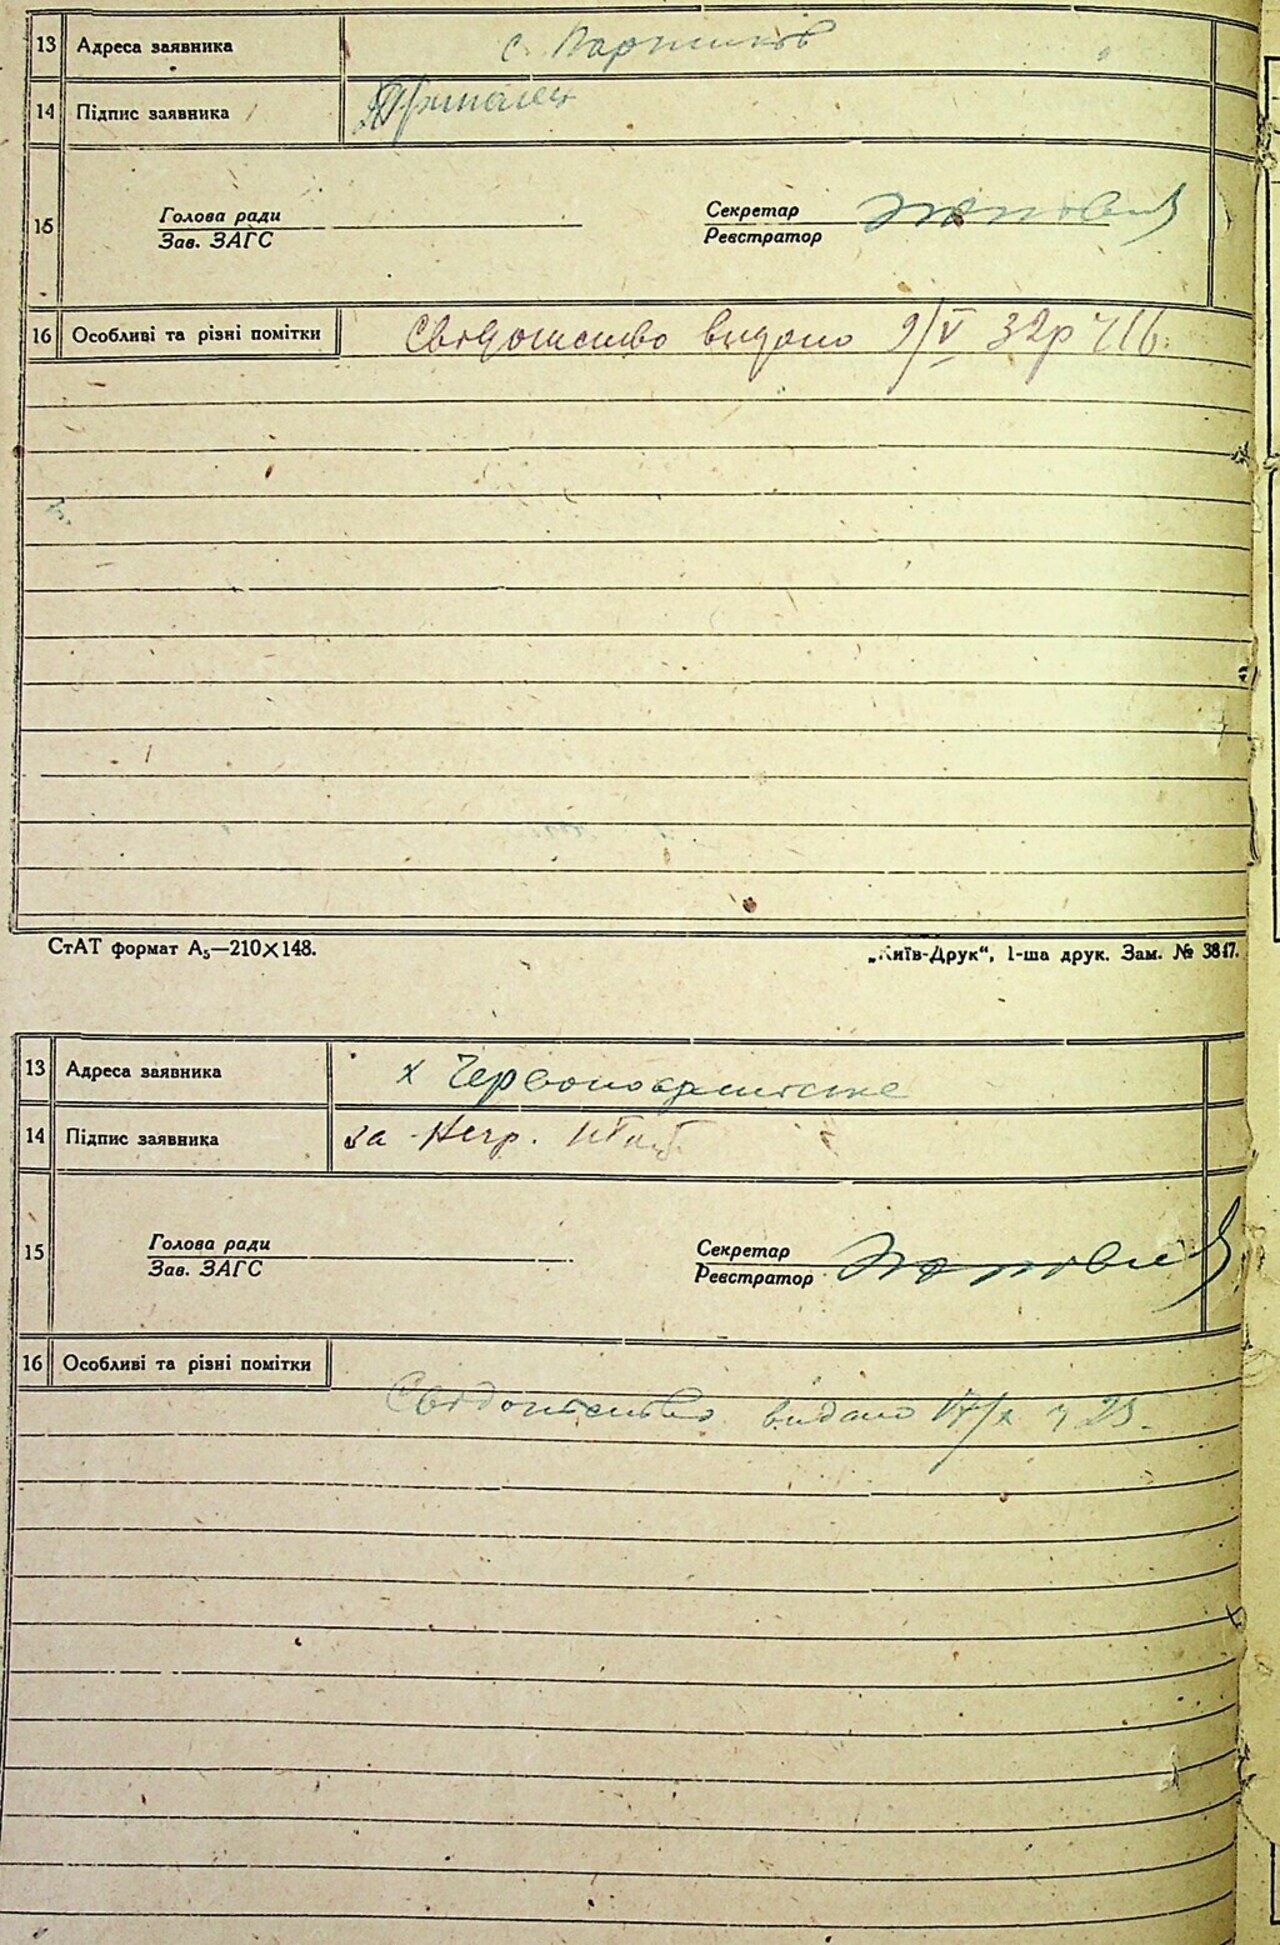 13 Адреса заявника с.
14 Підпис заявника
15 Голова ради Секретар
Зав. ЗАГС Реєстратор
16 Особливі та різні помітки Свідоцтво видано 9/V 32р ч 16
СтАТ формат А₅—210×148. „Київ-Друк“, 1-ша друк. Зам. № 3817.
13 Адреса заявника х Червоноармійське
14 Підпис заявника за Негр.
15 Голова ради Секретар
Зав. ЗАГС Реєстратор
16 Особливі та різні помітки
Свідоцтво видано 17/X ч 23.